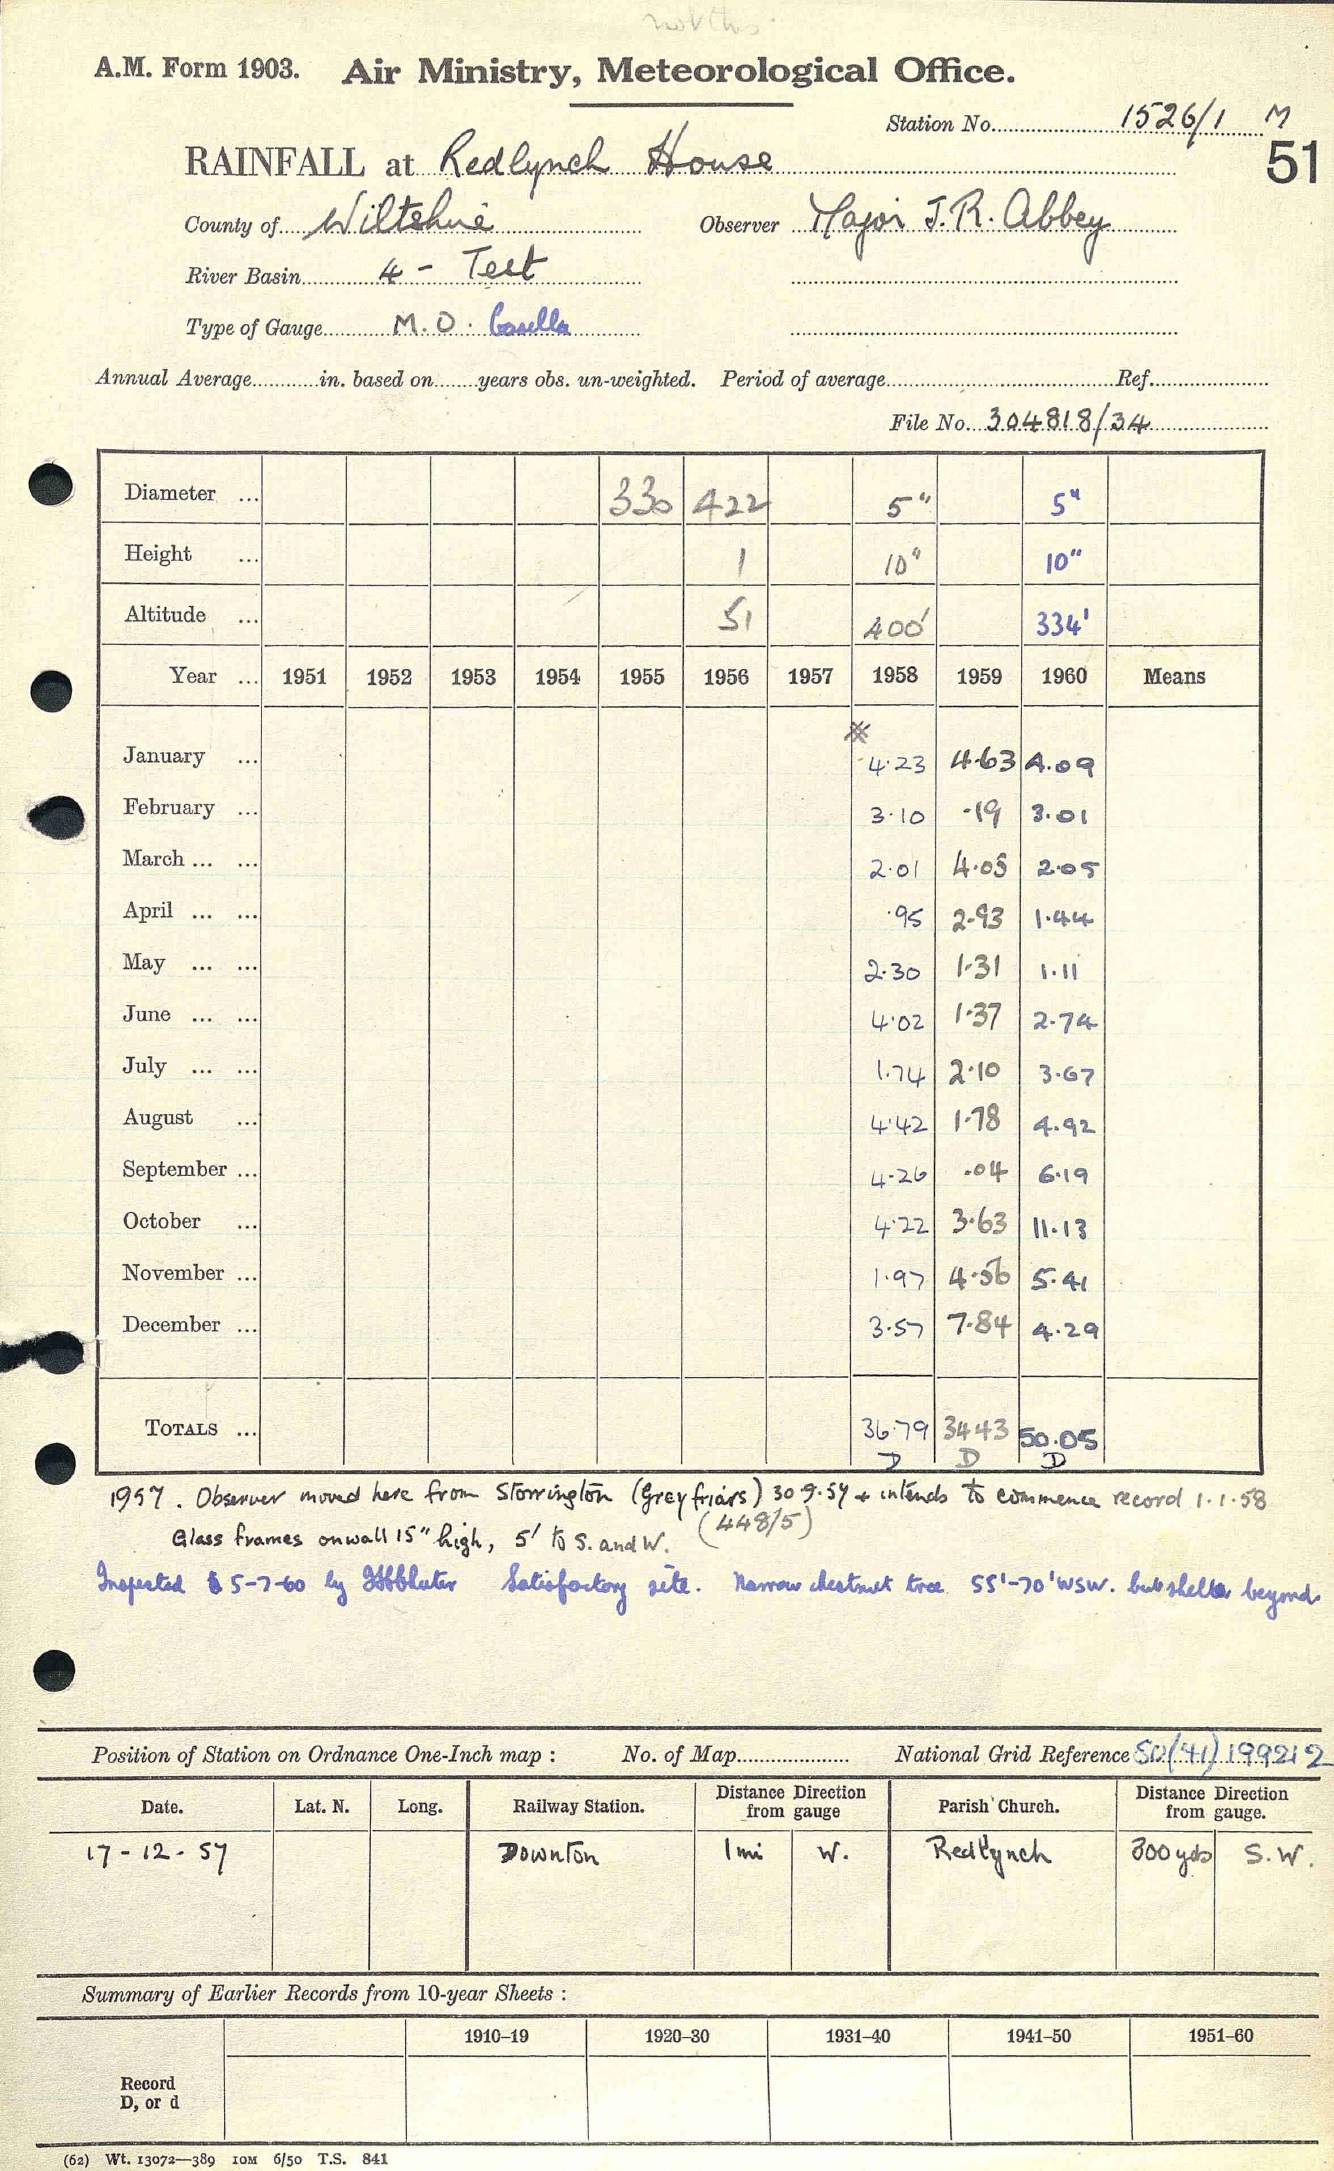 A.M. Form 1903. Air Ministry, Meteorological Office.
Station No. 1526/1 M
51
RAINFALL at Redlynch House
County of Wiltshire Observer Major J.R. Abbey
River Basin 4 - Test
Type of Gauge M.O. Casella
Annual Average in. based on years obs. un-weighted. Period of average Ref.
File No. 304818/34
Diameter ... 330 422 5" 5"
Height ... 1 10" 10"
Altitude ... 51 400' 334'
Year ... 1951 1952 1953 1954 1955 1956 1957 1958 1959 1960 Means
January ... 4.23 4.63 4.09
February ... 3.10 .19 3.01
March ... ... 2.01 4.05 2.05
April ... ... .95 2.93 1.44
May ... ... 2.30 1.31 1.11
June ... ... 4.02 1.37 2.74
July ... ... 1.74 2.10 3.67
August ... 4.42 1.78 4.92
September ... 4.26 .04 6.19
October ... 4.22 3.63 11.13
November ... 1.97 4.56 5.41
December ... 3.57 7.84 4.29
TOTALS ... 36.79 34.43 50.05
D D D
1957. Observer moved here from Storrington (Greyfriars) 30.9.57 + intends to commence record 1.1.58
(448/5)
Glass frames on wall 15" high, 5' to S. and W.
Inspected 5-7-60 by Satisfactory site. Narrow chestnut tree 55'-70' WSW. but shelter beyond
Position of Station on Ordnance One-Inch map : No. of Map National Grid Reference SU(41) 199212
Date. Lat. N. Long. Railway Station. Distance Direction from gauge Parish Church. Distance Direction from gauge.
17-12-57 Downton 1 mi W. Redlynch 300 yds S.W.
Summary of Earlier Records from 10-year Sheets :
1910–19 1920–30 1931–40 1941–50 1951–60
Record
D, or d
(62) Wt. 13072—389 10M 6/50 T.S. 841